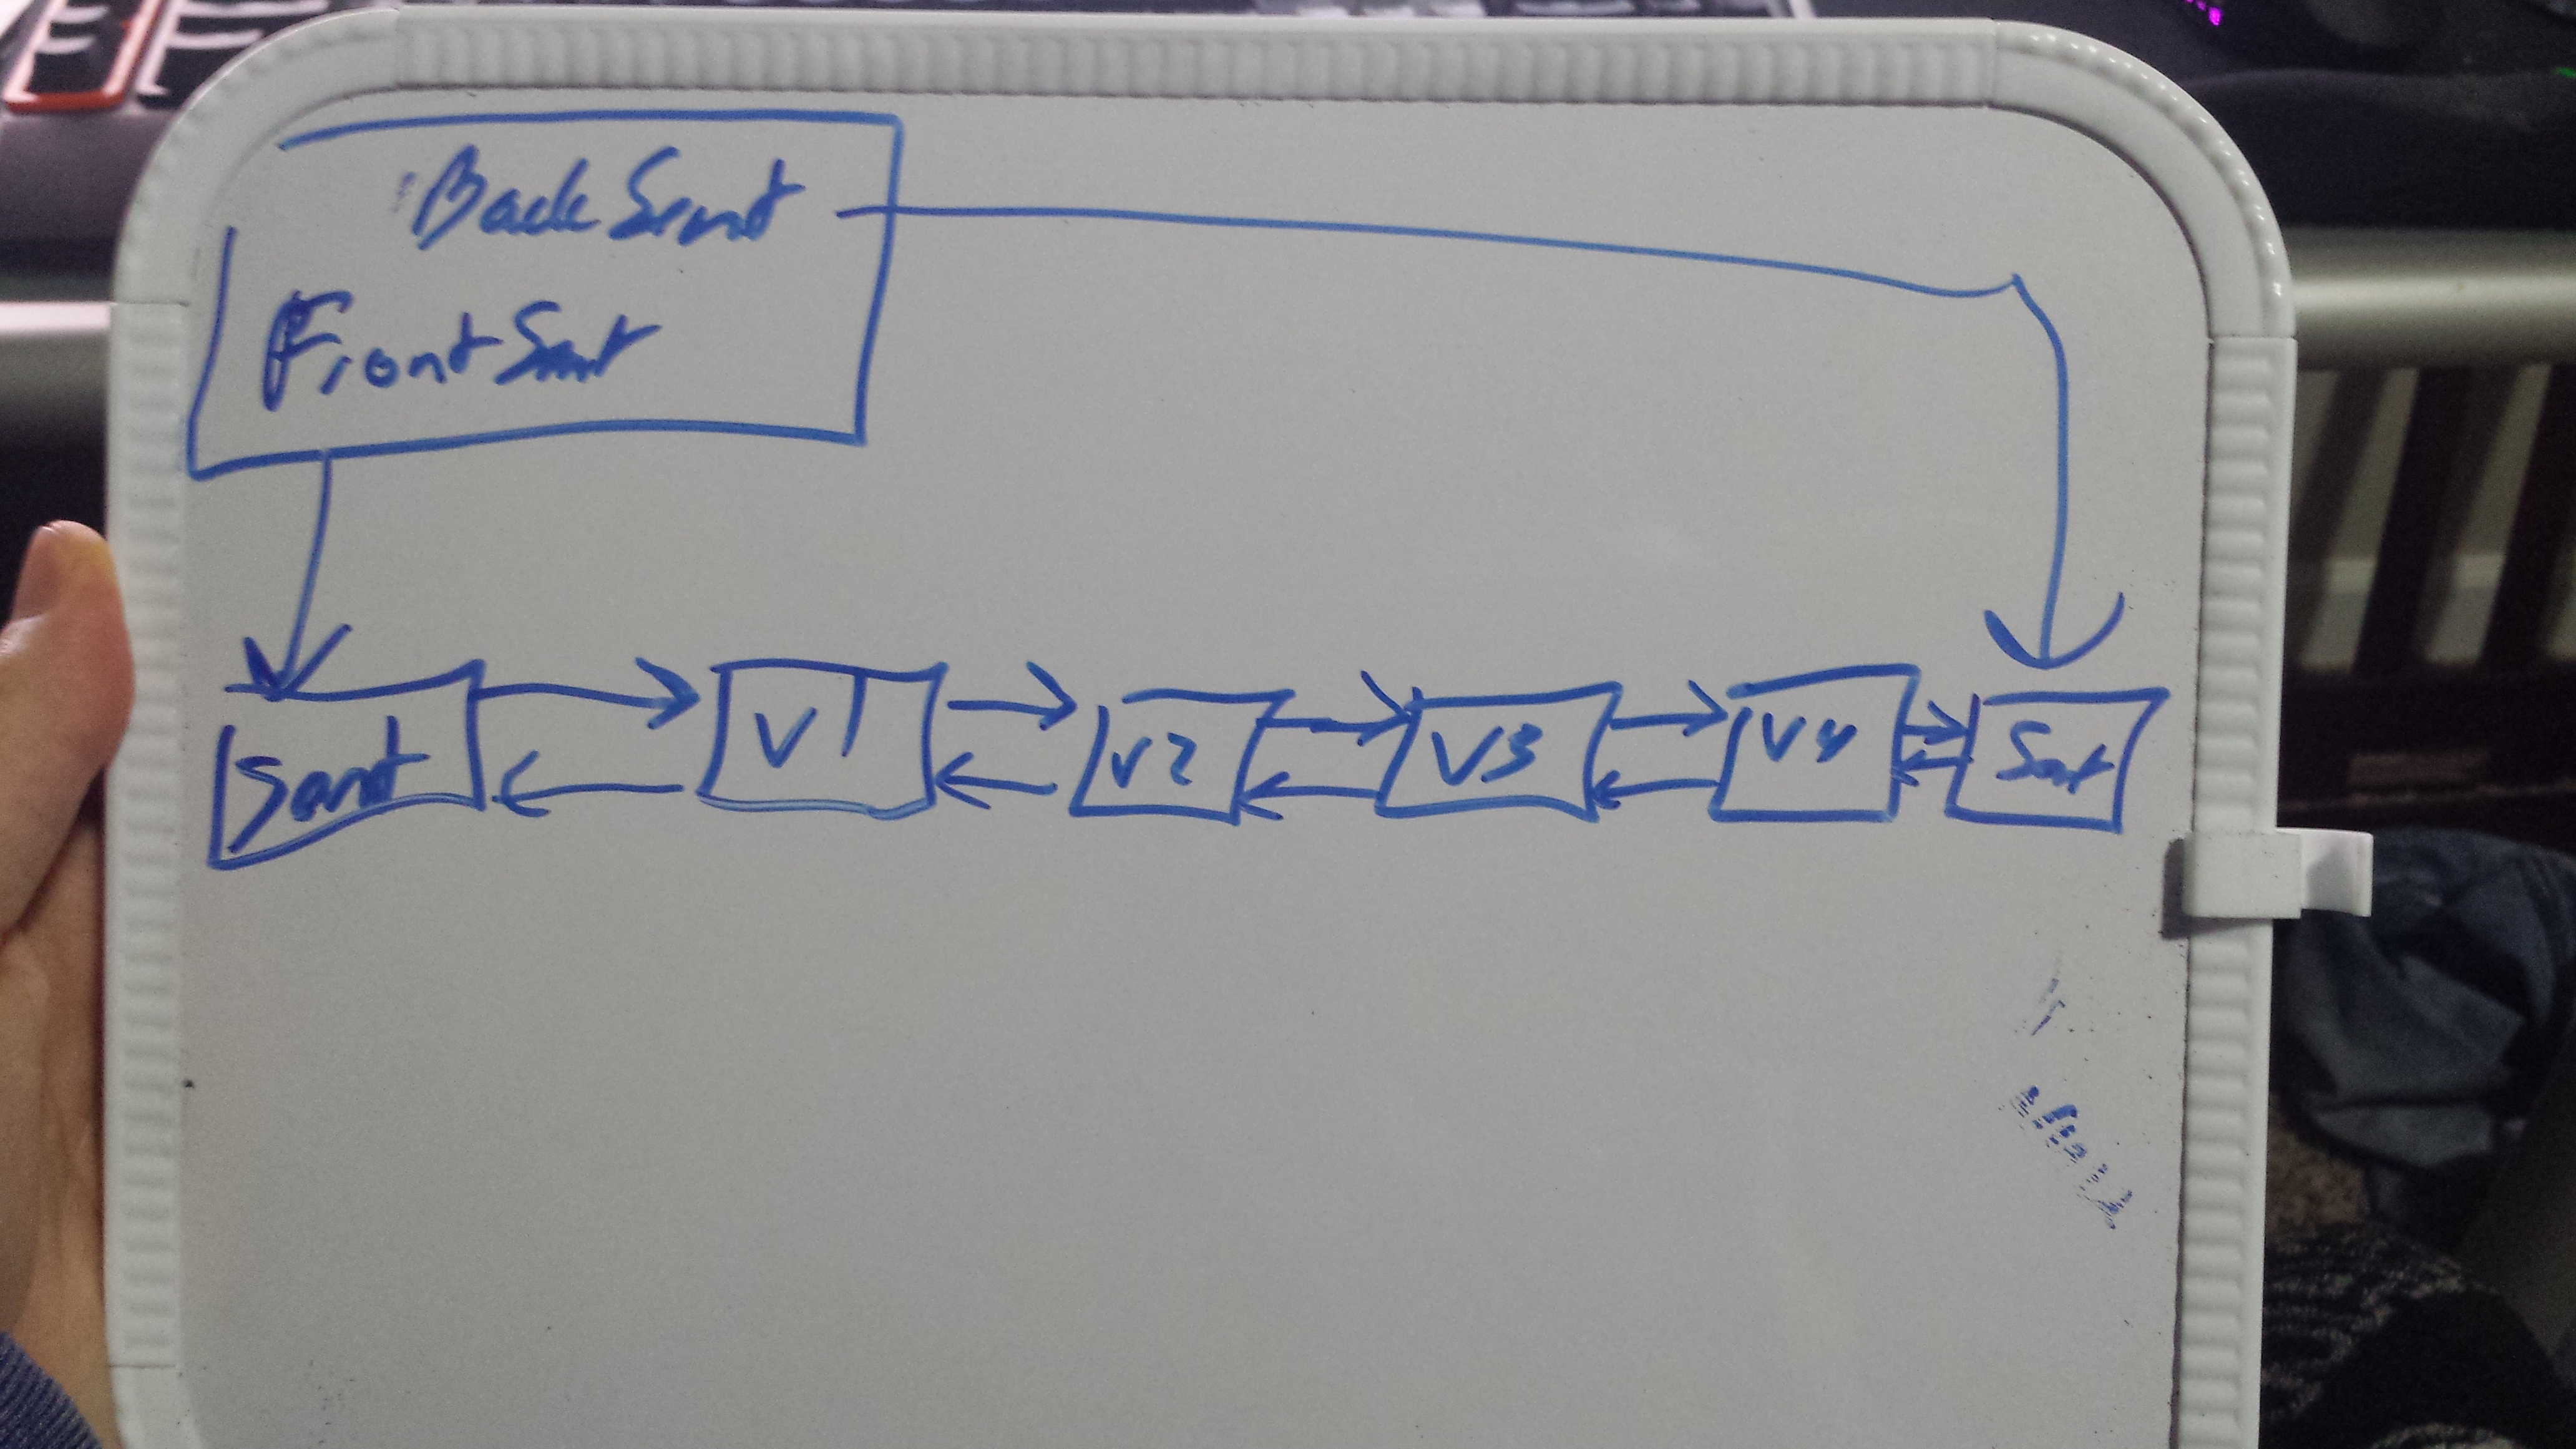 Back Sent
Front Sent
Sent V1 V2 V3 V4 Sent